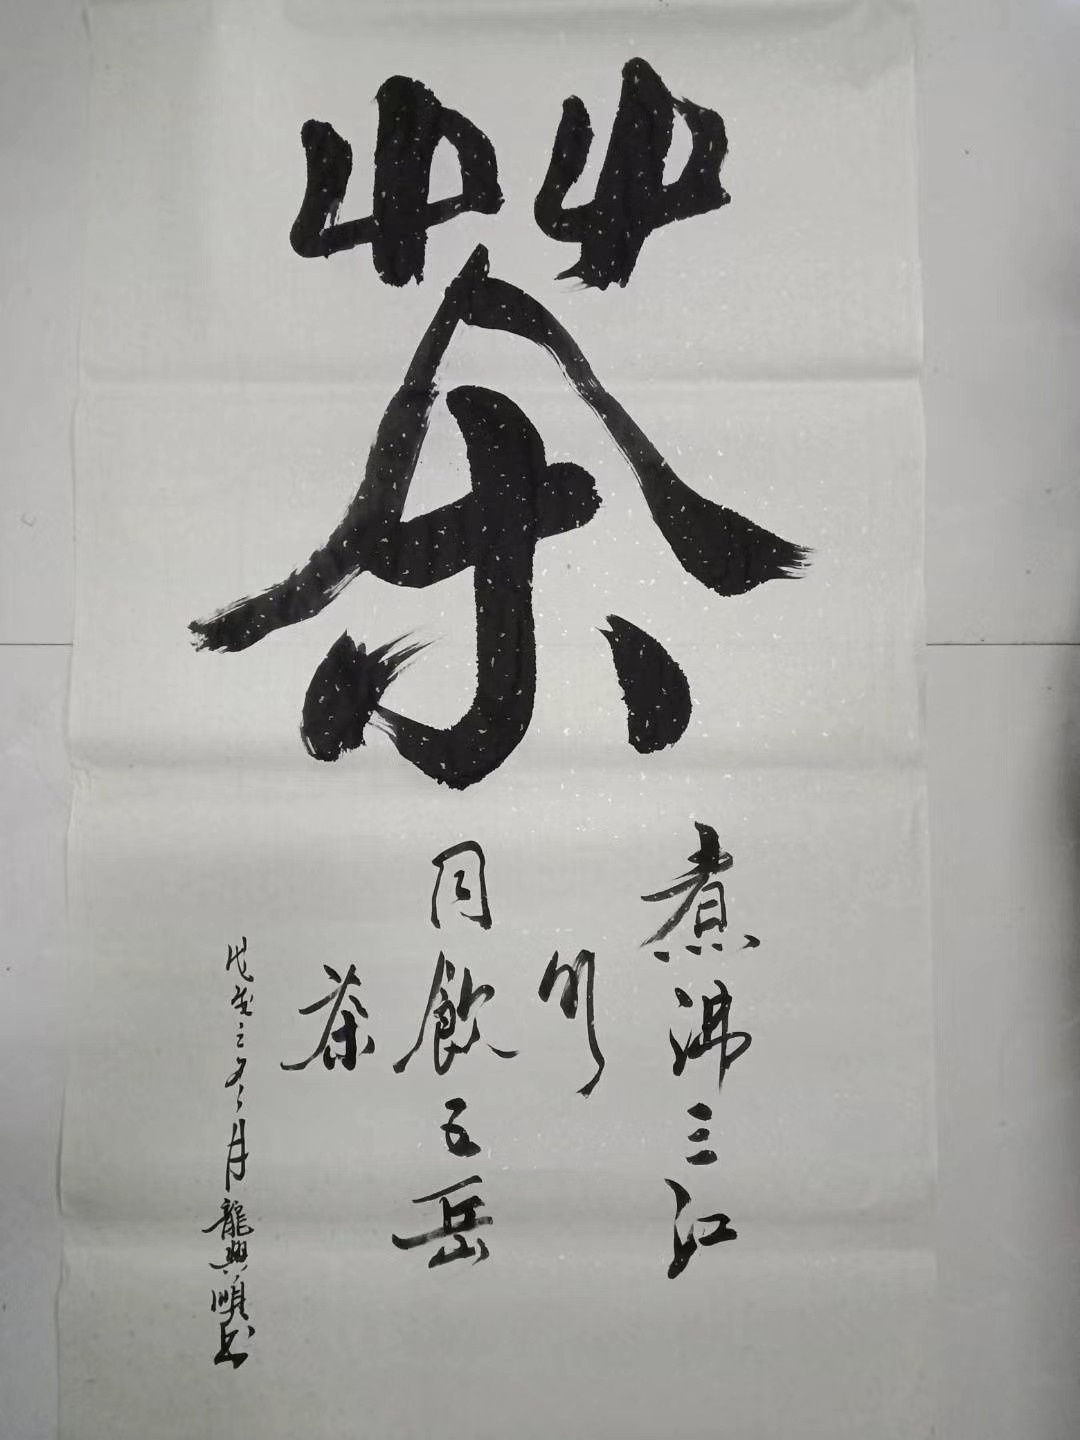 茶
煮沸三江
水
同飲五岳
茶
戊戌之冬月龍興书